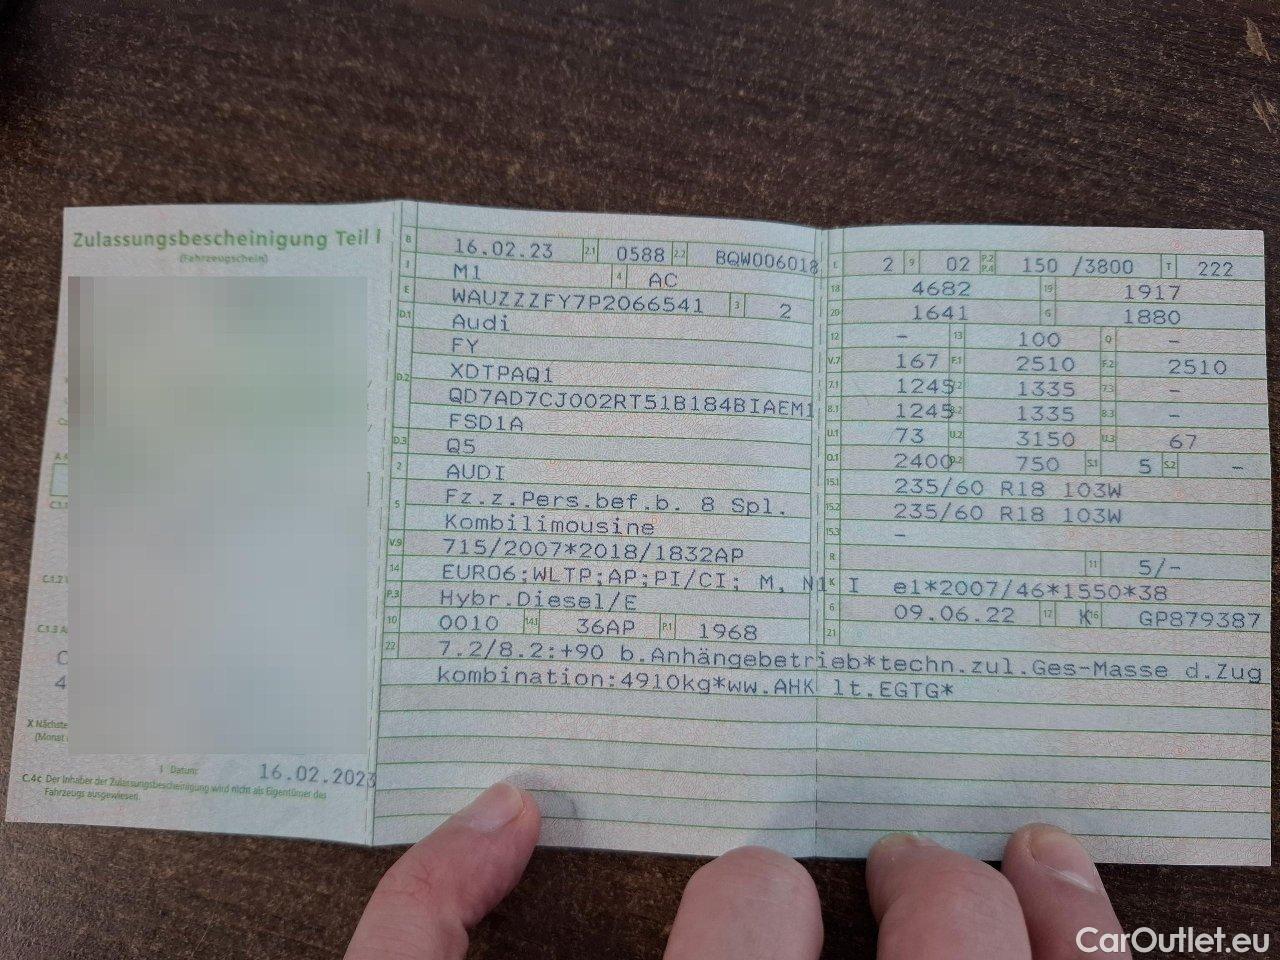 Zulassungsbescheinigung Teil I
(Fahrzeugschein)
X Nächste
(Monat
I Datum:
16.02.2023
C.4c Der Inhaber der Zulassungsbescheinigung wird nicht als Eigentümer des
Fahrzeugs ausgewiesen.
B 16.02.23 2.1 0588 2.2 BQW006018
J M1 4 AC
E WAUZZZFY7P2066541 3 2
D.1 Audi
FY
D.2 XDTPAQ1
QD7AD7CJ002RT51B184BIAEM1
FSD1A
D.3 Q5
2 AUDI
5 Fz.z.Pers.bef.b. 8 Spl.
Kombilimousine
V.9 715/2007*2018/1832AP
14 EURO6;WLTP;AP;PI/CI; M, N1 I
P.3 Hybr.Diesel/E
10 0010 14.1 36AP P.1 1968
L 2 9 02 P.2 P.4 150 /3800 T 222
18 4682 19 1917
20 1641 G 1880
12 - 13 100 Q -
V.7 167 F.1 2510 F.2 2510
7.1 1245 7.2 1335 7.3 -
8.1 1245 8.2 1335 8.3 -
U.1 73 U.2 3150 U.3 67
O.1 2400 O.2 750 S.1 5 S.2 -
15.1 235/60 R18 103W
15.2 235/60 R18 103W
15.3 -
R 11 5/-
K e1*2007/46*1550*38
6 09.06.22 17 K 16 GP879387
21
22 7.2/8.2:+90 b.Anhängebetrieb*techn.zul.Ges-Masse d.Zug
kombination:4910kg*ww.AHK lt.EGTG*
CarOutlet.eu